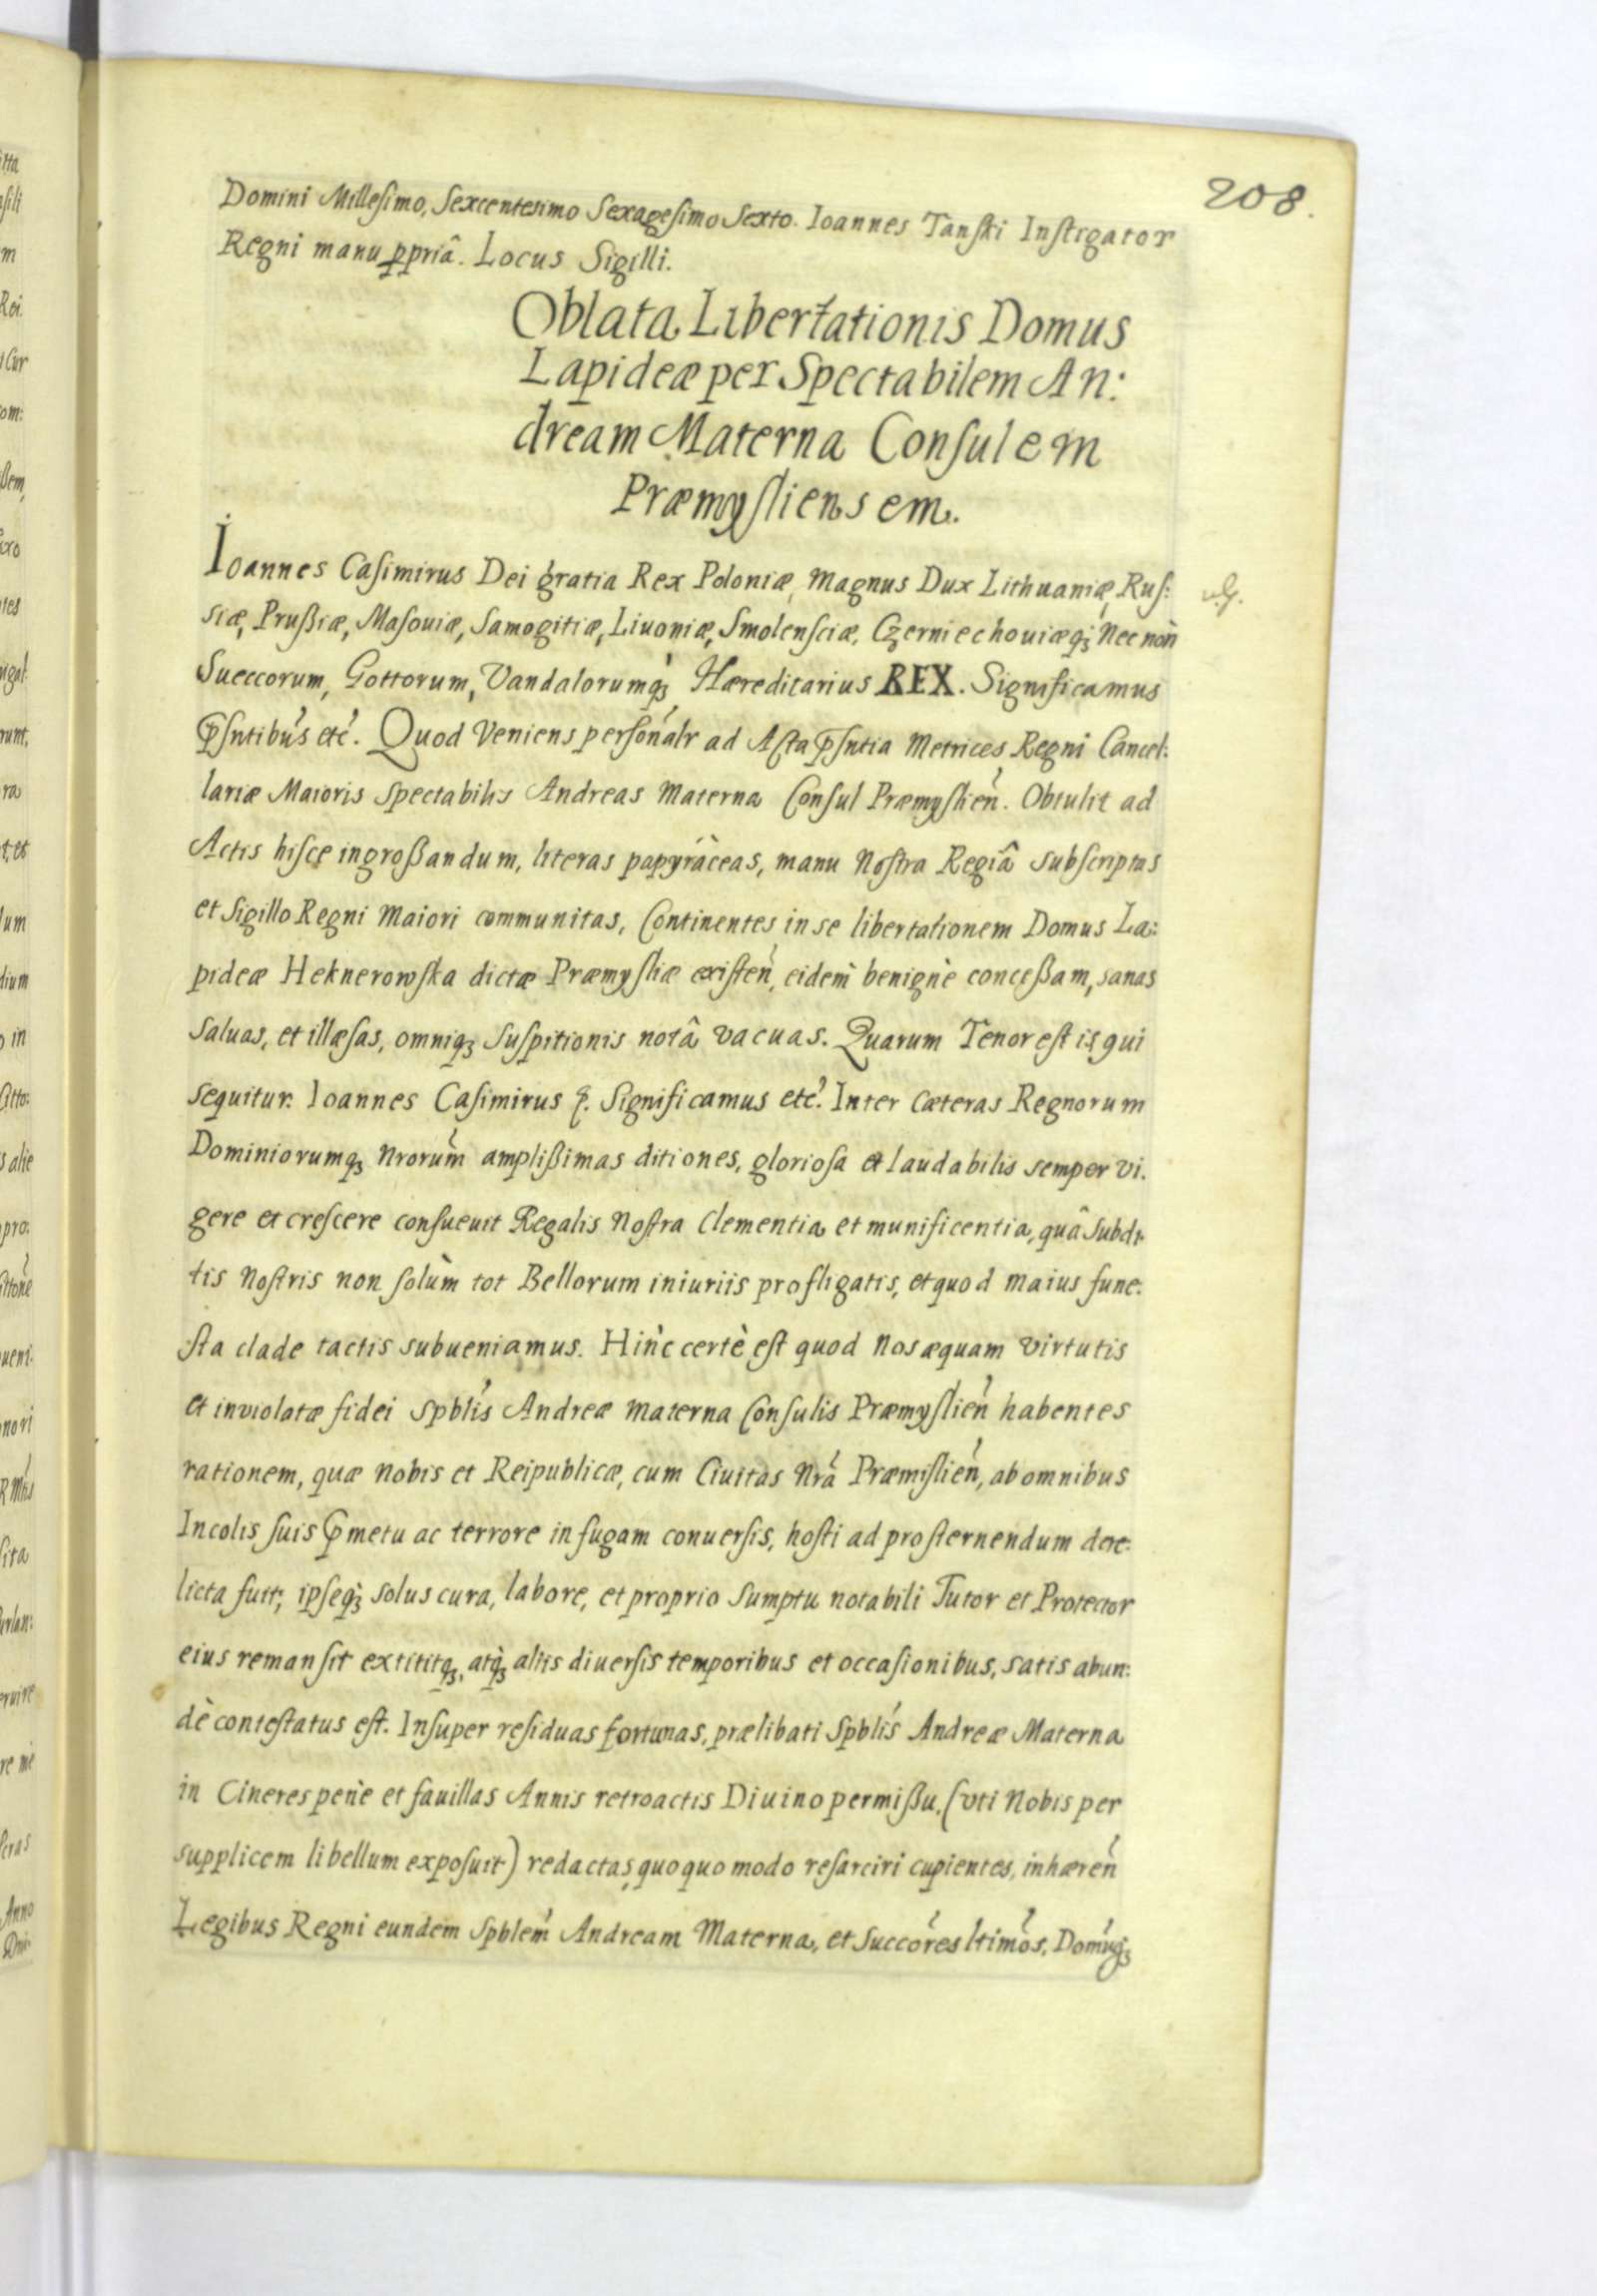 208.
Domini Millesimo, Sexcentesimo Sexagesimo Sexto. Ioannes Tanski Instigator
Regni manu ꝓpriâ. Locus Sigilli.
Oblata Libertationis Domus
Lapideæ per Spectabilem An:
dream Materna Consulem
Præmysliensem.
Ioannes Casimirus Dei gratia Rex Poloniæ, Magnus Dux Lithuaniæ, Rus:
siæ, Prußiæ, Masouiæ, Samogitiæ, Liuoniæ, Smolensciæ, Czerniechouiæqꝫ Nec non
Sueccorum, Gottorum, Vandalorumqꝫ Hæreditarius REX. Significamus
p̄sntibus etc. Quod Veniens personalr ad Acta p̄sntia Metrices Regni Cancel:
lariæ Maioris Spectabilis Andreas Materna Consul Præmyslien̄. Obtulit ad
Actis hisce ingroßandum, literas papyráceas, manu Nostra Regiâ subscriptas
et Sigillo Regni Maiori communitas, Continentes in se libertationem Domus La:
pideæ Heknerowska dictæ Præmysliæ existen̄, eidem benignè conceßam, sanas
saluas, et illæsas, omniqꝫ suspitionis notâ vacuas. Quarum Tenor est is qui
sequitur. Ioannes Casimirus Significamus etc. Inter Cæteras Regnorum
Dominiorumqꝫ Nrorum amplißimas ditiones, gloriosa et laudabilis semper vi.
gere et crescere consueuit Regalis Nostra Clementia et munificentia, quâ Subdi.
tis Nostris non solùm tot Bellorum iniuriis profligatis, et quod maius fune.
sta clade tactis subueniamus. Hinc certè est quod Nos æquam virtutis
et inviolatæ fidei Spblis Andreæ Materna Consulis Præmyslien̄ habentes
rationem, quæ Nobis et Reipublicæ, cum Ciuitas Nra Præmislien̄, ab omnibus
Incolis suis p̄ metu ac terrore in fugam conuersis, hosti ad prosternendum dere.
licta fuit; ipseqꝫ solus cura, labore, et proprio sumptu notabili Tutor et Protector
eius remansit extititqꝫ, atqꝫ aliis diuersis temporibus et occasionibus, satis abun:
dè contestatus est. Insuper residuas fortunas, prælibati Spblis Andreæ Materna
in Cineres penè et fauillas Annis retroactis Diuino permißu, (vti Nobis per
supplicem libellum exposuit) redactas, quoquo modo resarciri cupientes, inhæren̄
Legibus Regni eundem Spblem Andream Materna, et Succores ltimos, Domuqꝫ